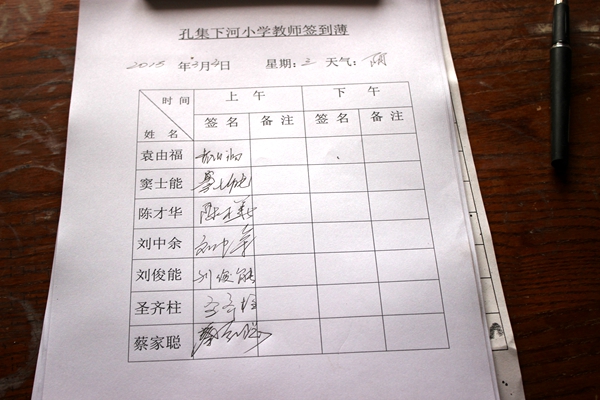 孔集下河小学教师签到薄
2015 年3月3日 星期:三 天气:阴
时间 上午 下午
姓名 签名 备注 签名 备注
袁由福
窦士能
陈才华
刘中余 刘中余
刘俊能 刘俊能
圣齐柱
蔡家聪